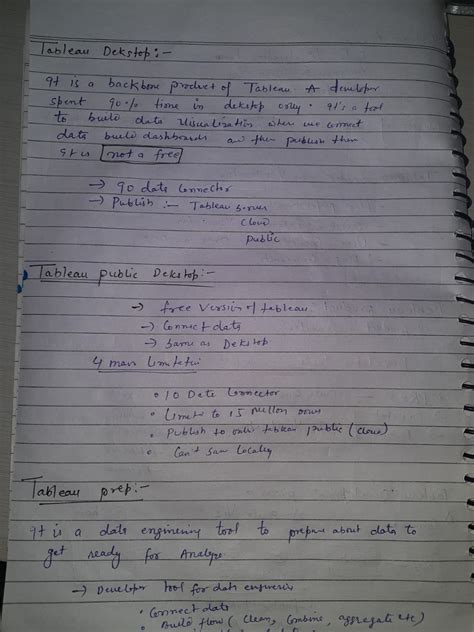 Tableau Dekstop:-
It is a backbone product of Tableau A developer
spent 90% time in dekstop only. It's a tool
to build data visualization where we connect
data build dashboards and then publish them
It is not a free
→ 90 data connector
→ Publish :- Tableau Server
Cloud
Public
Tableau public Dekstop:-
→ free version of tableau
→ Connect data
→ Same as Dekstop
4 main limitatin
• 10 Data Connector
• Limited to 15 Million rows
• Publish to only tableau public (cloud)
• Can't save locally
Tableau prep:-
It is a data enginering tool to prepare about data to
get ready for Analyze
→ Developer tool for data engineerin
• Connect data
• Build flow ( Clean, Combine, aggregate etc)